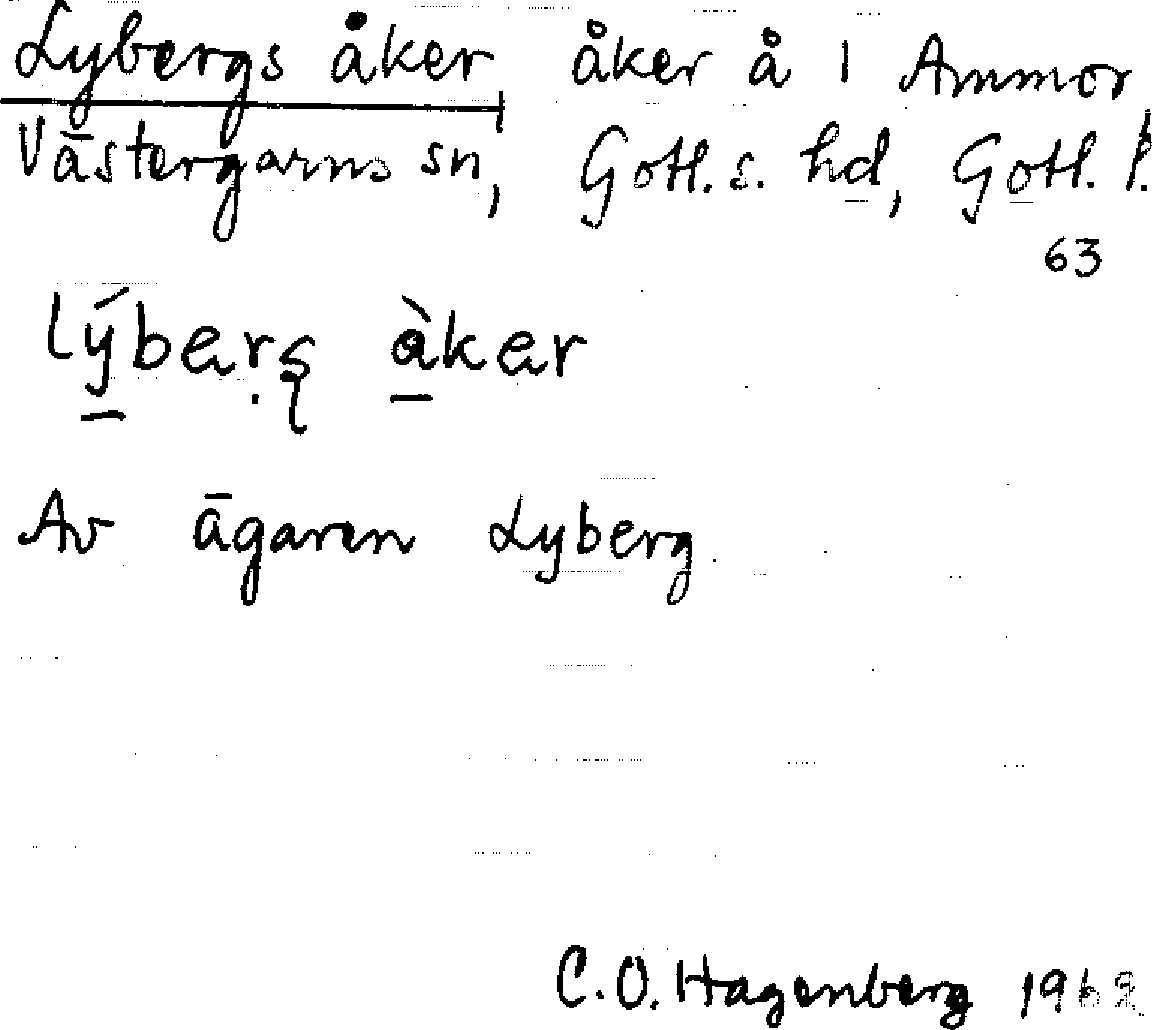 Lybergs åker åker å 1 Ammor
Västergarns sn, Gotl. s. hd, Gotl. l.
63
lýbęrs̨ àkęr
Av ägaren Lyberg.
C.O. Hagenberg